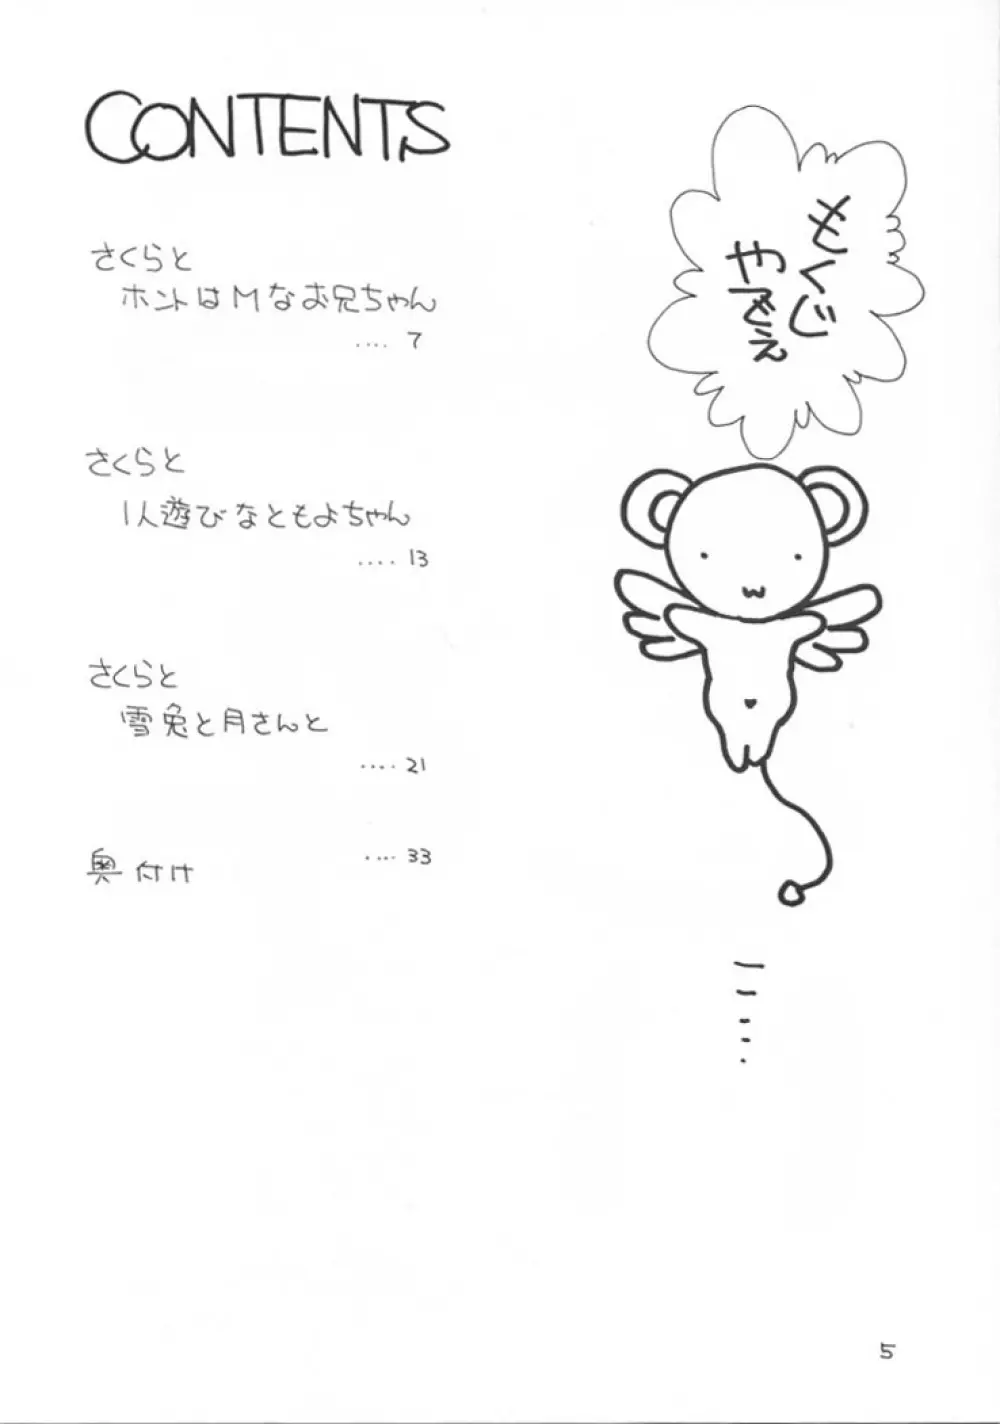 CONTENTS
さくらと
ホントはMなお兄ちゃん
.... 7
さくらと
1人遊びなともよちゃん
.... 13
さくらと
雪兎と月さんと
.... 21
奥付け
.... 33
もくじ
やでえ
5